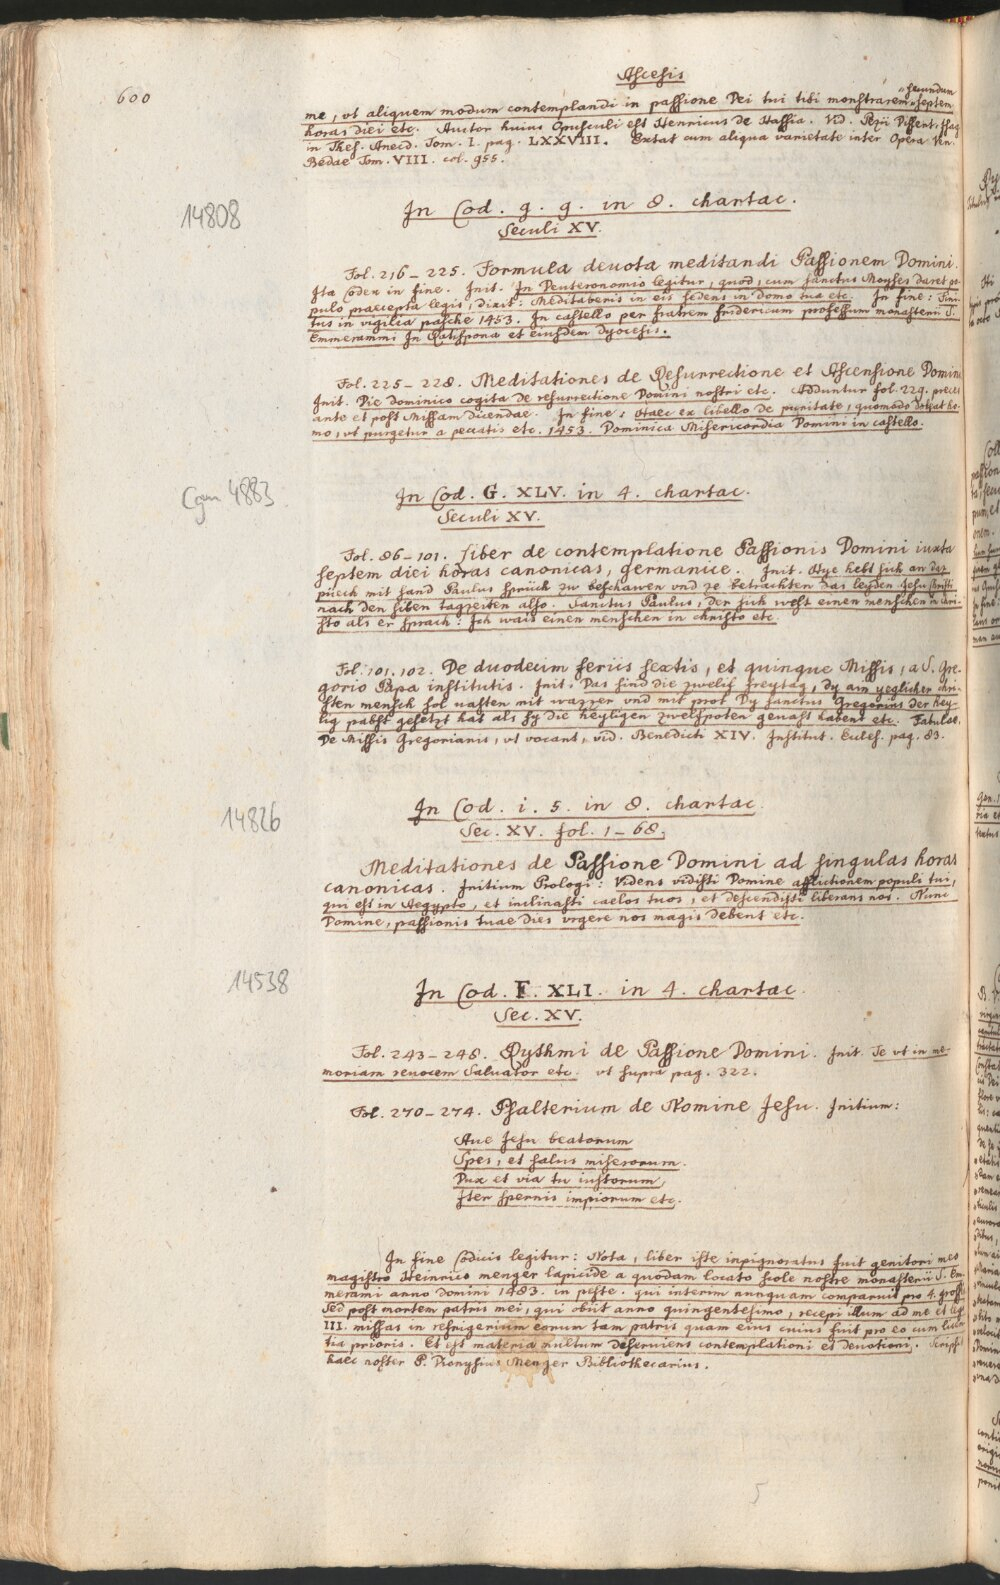 600
Ascesis
me, vt aliquem modum contemplandi in passione Dei tui tibi monstrarem secundum septem
horas diei etc. Auctor huius Opusculi est Henricus de Hassia. Vid. Pezii Dissert. Isag.
in Thes. Anecd. Tom. I. pag. LXXVIII. Extat cum aliqua varietate inter Opera Ven.
Bedae Tom. VIII. col. 955.
14808
In Cod. g. g. in 8. chartac.
Seculi XV.
Fol. 216–225. Formula deuota meditandi Passionem Domini.
Ita Codex in fine. Init. In Deuteronomio legitur, quod, cum sanctus Moyses daret po-
pulo praecepta legis, dixit: Meditaberis in eis sedens in domo tua etc. In fine: Fini-
tus in vigilia pasche 1453. In castello per fratrem fridericum professum monasterii S.
Emmerammi In Ratispona et eiusdem Dyocesis.
Fol. 225–228. Meditationes de Resurrectione et Ascensione Domini
Init. Die dominico cogita de resurrectione Domini nostri etc. Adduntur fol. 229. preces
ante et post Missam dicendae. In fine: Haec ex libello de puritate, quomodo debeat ho-
mo, vt purgetur a peccatis etc. 1453. Dominica Misericordia Domini in castello.
Cgm 4883
In Cod. G. XLV. in 4. chartac.
Seculi XV.
Fol. 86–101. Liber de contemplatione Passionis Domini iuxta
septem diei horas canonicas, germanice. Init. Hye hebt sich an daz
puech mit sand Paulus sprüch zu beschawen vnd ze betrachten das leyden Jesu Christi
nach den siben tagzeiten also. Sanctus Paulus, der sich west einen menschen in chri-
sto als er sprach: Ich wais einen menschen in christo etc.
Fol. 101. 102. De duodecim feriis sextis, et quinque Missis, a S. Gre-
gorio Papa institutis. Init. Das sind die zwelif freytag, dy ain yeglicher chri-
sten mensch sol vasten mit wazzer vnd mit prot Dy sanctus Gregorius der hey-
lig pabst gesetzt hat als sy die heyligen zwelfpoten geuast habent etc. Fabulae.
De Missis Gregorianis, vt vocant, vid. Benedicti XIV. Institut. Eccles. pag. 83.
14826
In Cod. i. 5. in 8. chartac.
Sec. XV. fol. 1–68.
Meditationes de Passione Domini ad singulas horas
canonicas. Initium Prologi: Videns vidisti Domine afflictionem populi tui,
qui est in Aegypto, et inclinasti caelos tuos, et descendisti liberans nos. Nunc
Domine, passionis tuae dies vrgere nos magis debent etc.
14538
In Cod. F. XLI. in 4. chartac.
Sec. XV.
Fol. 243–248. Rythmi de Passione Domini. Init. Te vt in me-
moriam reuocem Saluator etc. vt supra pag. 322.
Fol. 270–274. Psalterium de Nomine Jesu. Initium:
Aue Jesu beatorum
Spes, et salus miserorum.
Dux et via tu iustorum,
Iter spernis impiorum etc.
In fine Codicis legitur: Nota, liber iste inpignoratus fuit genitori meo
magistro Heinrico menger lapicide a quodam locato scole nostre monasterii S. Em-
merami anno Domini 1483. in peste. qui interim nunquam comparuit pro 4. gross.
Sed post mortem patris mei, qui obiit anno quingentesimo, recepi illum ad me et legi
III. missas in refrigerium eorum tam patris quam eius cuius fuit pro eo cum licen-
tia prioris. Et est materia multum deseruiens contemplationi et deuotioni. Scripsit
haec noster P. Dionysius Menger Bibliothecarius.
5